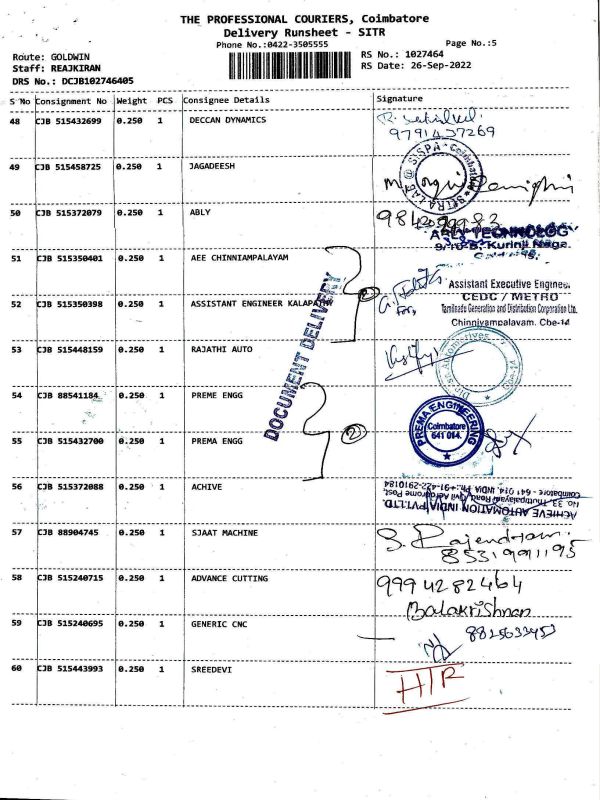 THE PROFESSIONAL COURIERS, Coimbatore
Delivery Runsheet - SITR
Phone No.:0422-3505555 Page No.:5
Route: GOLDWIN RS No.: 1027464
Staff: REAJKIRAN RS Date: 26-Sep-2022
DRS No.: DCJB102746405
S No Consignment No Weight PCS Consignee Details Signature
48 CJB 515432699 0.250 1 DECCAN DYNAMICS
9791437269
49 CJB 515458725 0.250 1 JAGADEESH
SISPA Coimbatore SITRA LAB
50 CJB 515372079 0.250 1 ABLY
ABLY TECHNOLOGY
51 CJB 515350401 0.250 1 AEE CHINNIAMPALAYAM
Assistant Executive Enginee
CEDC / METRO
52 CJB 515350398 0.250 1 ASSISTANT ENGINEER KALAPATHY
for,
Tamilnadu Generation and Distribution Corporation Ltd.
Chinniyampalavam. Cbe-14
DOCUMENT DELIVERY
2
53 CJB 515448159 0.250 1 RAJATHI AUTO
Cbe-14
54 CJB 88541184 0.250 1 PREME ENGG
PREMA ENGINEERING
Coimbatore
641 014.
2
55 CJB 515432700 0.250 1 PREMA ENGG
56 CJB 515372088 0.250 1 ACHIVE
ACHIEVE AUTOMATION INDIA PVT.LTD.
No. 33, Thottipalayam Road, Civil Aerodrome Post,
Coimbatore - 641 014. INDIA Ph.:+91-422-2910184
57 CJB 88904745 0.250 1 SJAAT MACHINE
S. Rajendran
8531991195
58 CJB 515240715 0.250 1 ADVANCE CUTTING
9994282464
Balakrishnan
59 CJB 515240695 0.250 1 GENERIC CNC
60 CJB 515443993 0.250 1 SREEDEVI